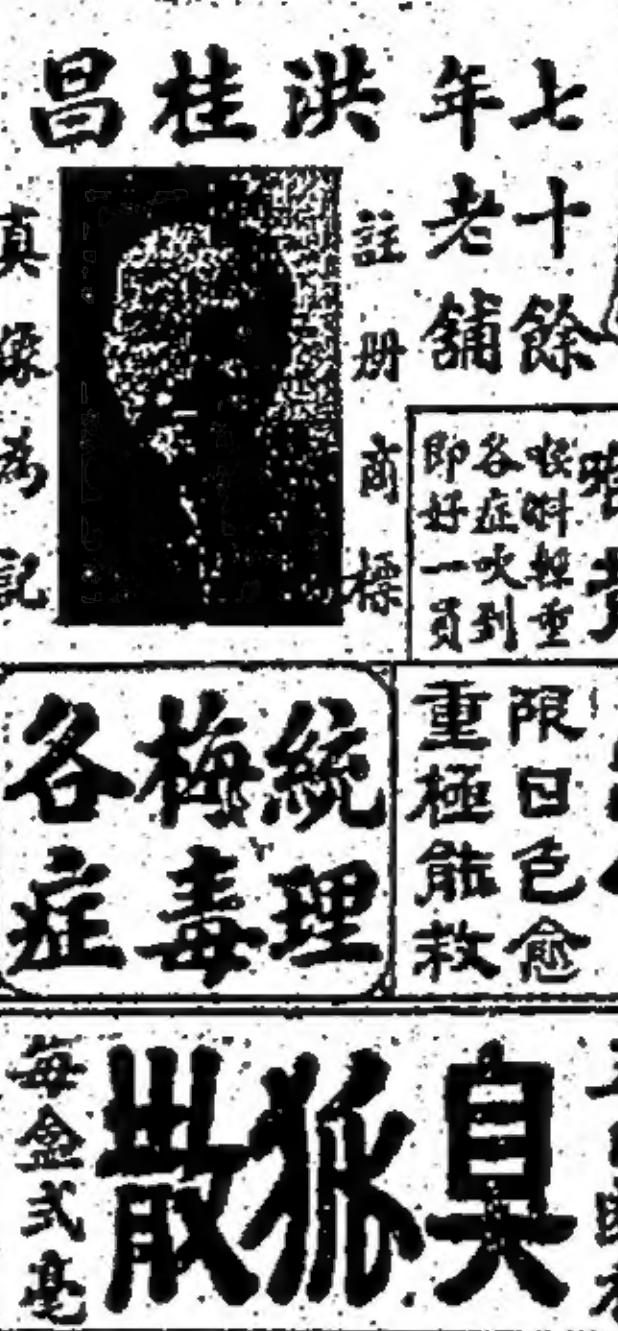 七十餘
年老舖
洪桂昌
註册商標
真像為記
喉科輕重
各症吹到
即好一員
限日包愈
重極能救
統理
梅毒
各症
臭狐散
每盒弍毫